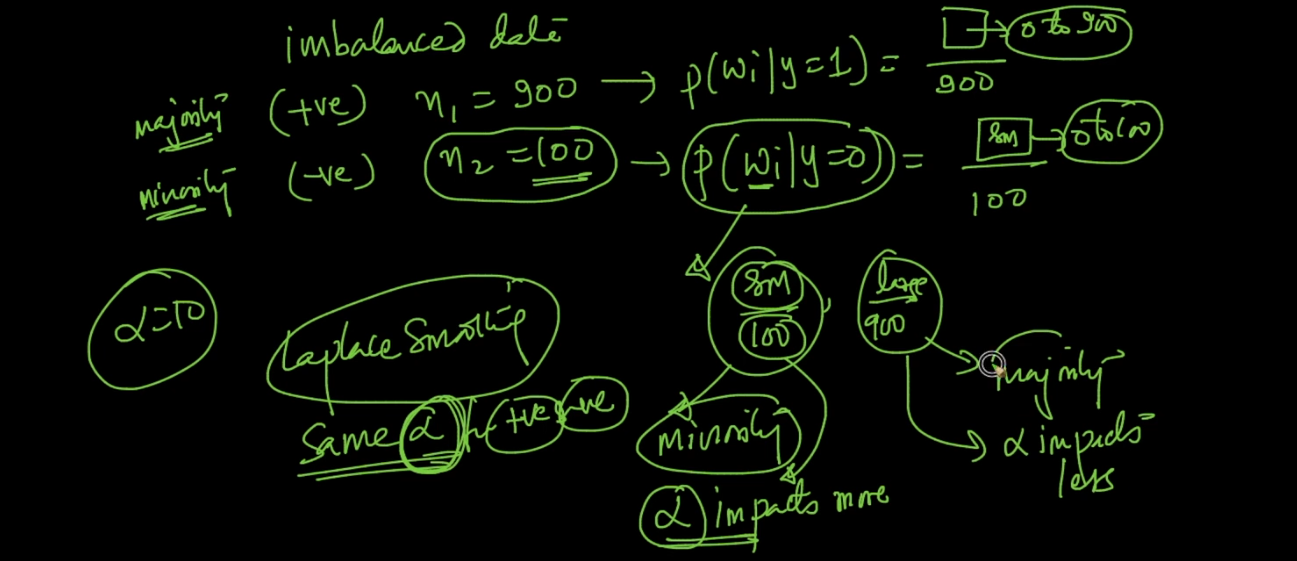 imbalanced data
majority (+ve) n₁ = 900 → p(wi|y=1) = □ → 0 to 900 / 900
minority (-ve) n₂ = 100 → p(wi|y=0) = sm → 0 to 100 / 100
α=10
Laplace Smoothing
Same α +ve -ve
sm / 100
large / 900
minority
α impacts more
majority
α impacts less